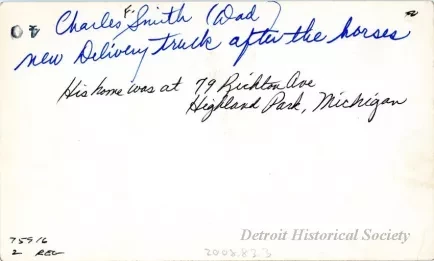 Charles F. Smith (Dad)
new Delivery truck after the horses
His home was at 79 Richton Ave
Highland Park, Michigan
Detroit Historical Society
75916
2 REC
2008.83.3